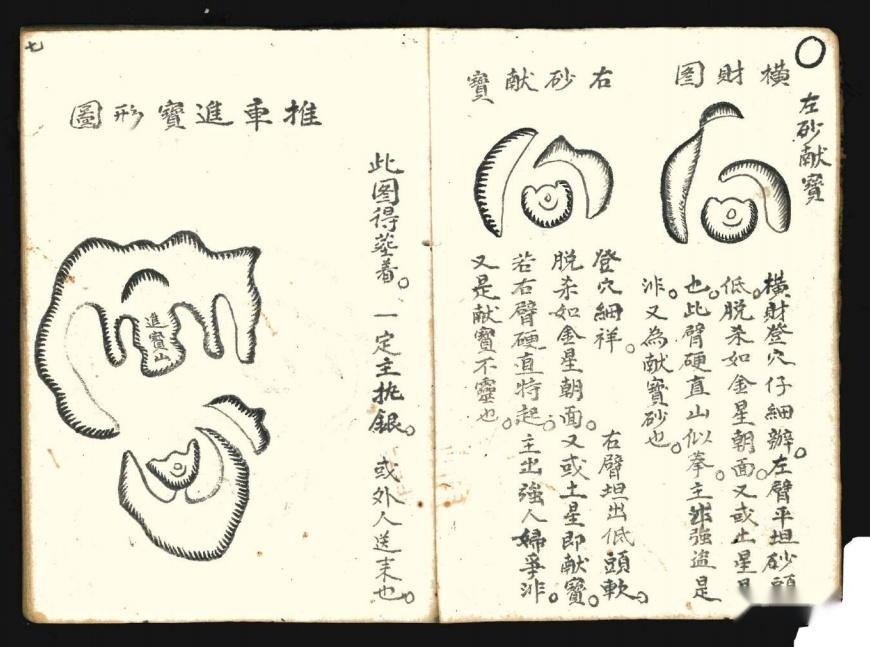 橫財圖
左砂献寶
橫財登穴仔細辦。左臂平坦砂頭
低。脱杀如金星朝面。又或土星是
也。此臂硬直山似拳。主出強盗是
非。又為献寶砂也。
右砂献寶
登穴細祥。右臂坦出低頭軟。
脱杀如金星朝面。又或土星即献寶。
若右臂硬直特起。主出強人婦爭非。
又是献寶不靈也。
七
推車進寶形圖
此图得塟着。一定主执銀。或外人送来也。
進寶山